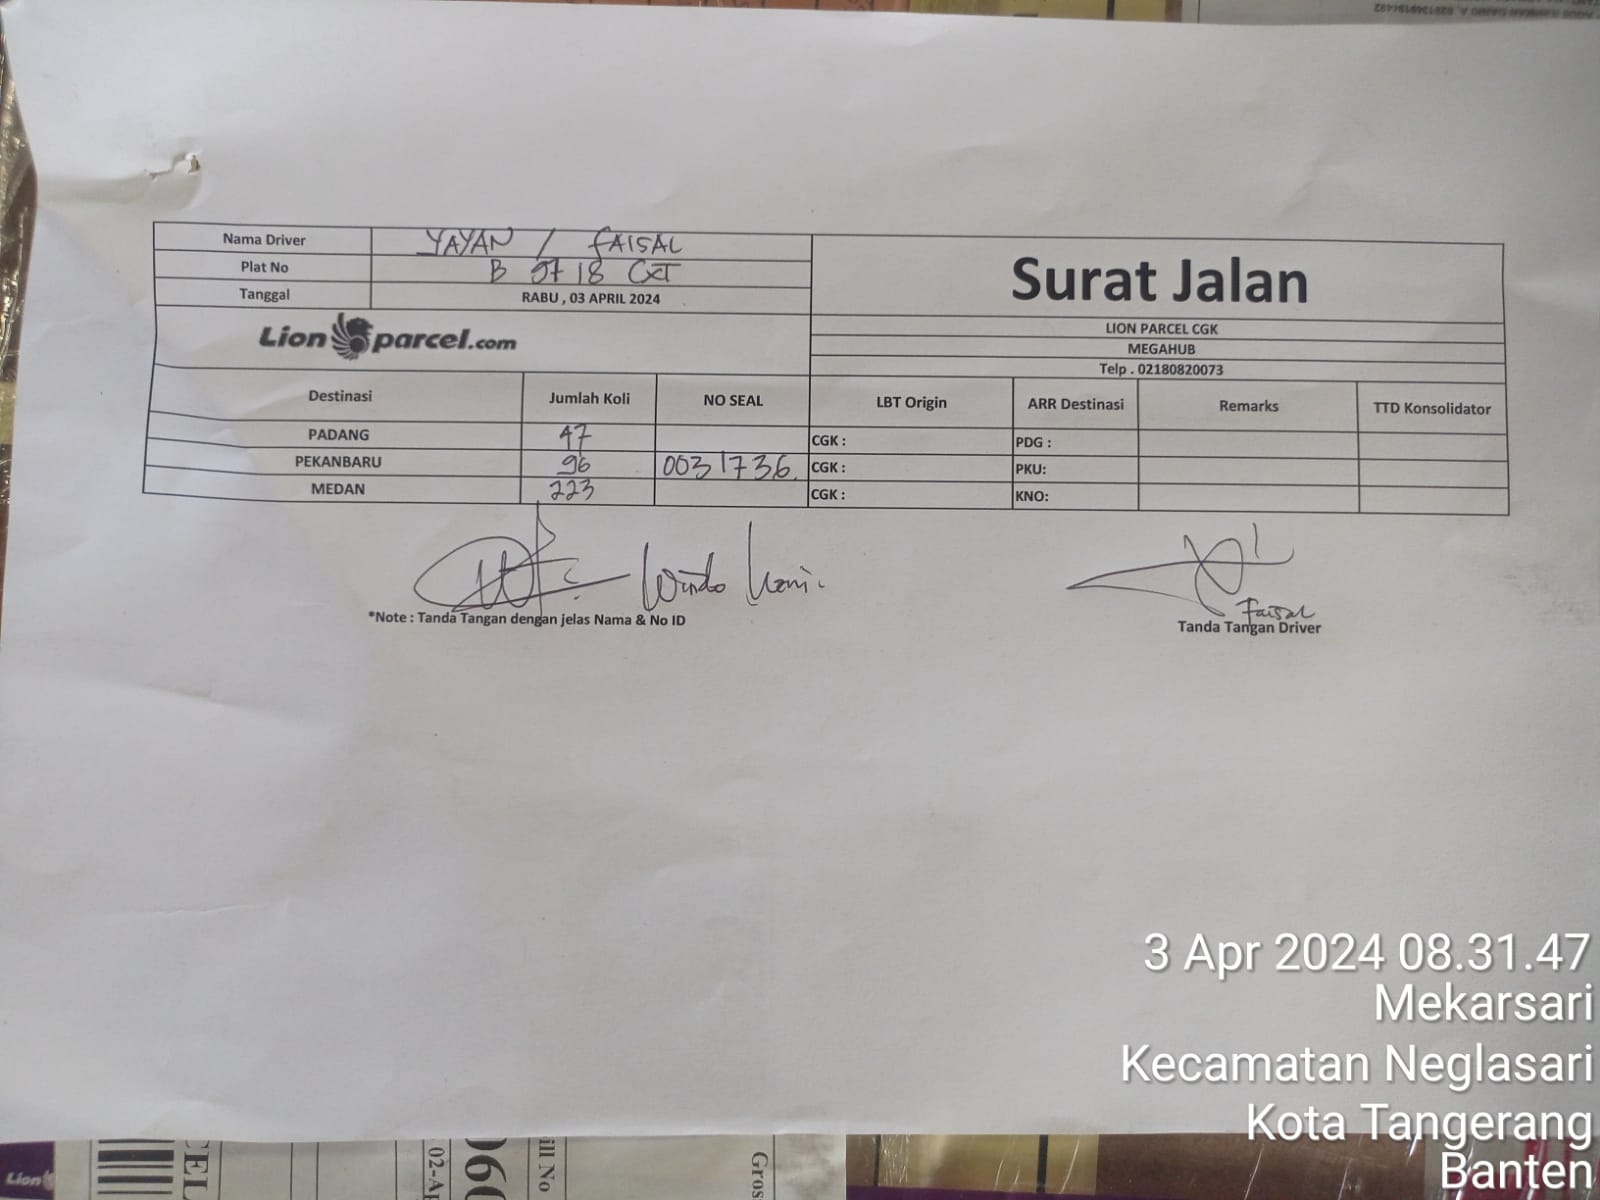 Nama Driver YAYAN / FAISAL
Plat No B 9718 CXT
Tanggal RABU , 03 APRIL 2024
Surat Jalan
Lion parcel.com
LION PARCEL CGK
MEGAHUB
Telp . 02180820073
Destinasi Jumlah Koli NO SEAL LBT Origin ARR Destinasi Remarks TTD Konsolidator
PADANG 47 CGK : PDG :
PEKANBARU 96 0031736. CGK : PKU:
MEDAN 223 CGK : KNO:
Faisal
*Note : Tanda Tangan dengan jelas Nama & No ID
Tanda Tangan Driver
3 Apr 2024 08.31.47
Mekarsari
Kecamatan Neglasari
Kota Tangerang
Banten
Lion
CEL
02-A
060
ill No
Gros